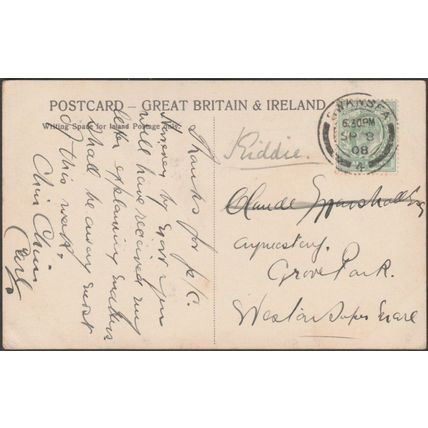 POSTCARD – GREAT BRITAIN & IRELAND
Writing Space for Inland Postage only.
Thanks for p.c.
by now you
will have received my
letter explaining matters
shall be away most
of this week.
Chin Chin
6.30PM
SP 8
08
4
Kiddie.
Claude Marshall Esq
Grove Park.
Weston Super Mare